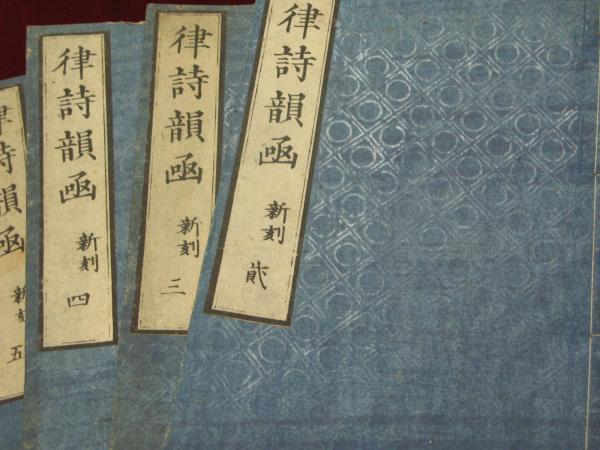 律詩韻凾
新刻
貮
律詩韻凾
新刻
三
律詩韻凾
新刻
四
律詩韻凾
新刻
五